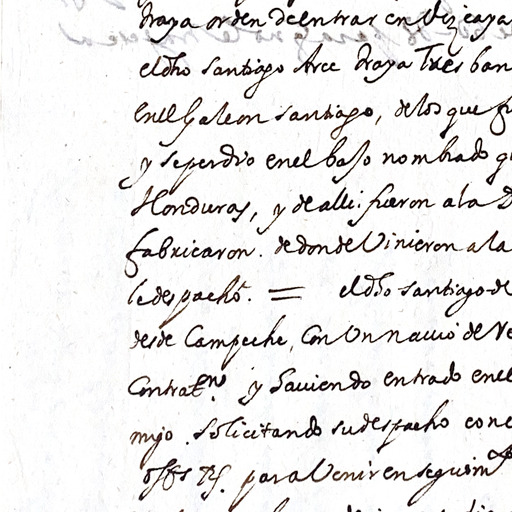 traya orden de entrar en Vizcaya
el dho santiago Arce traya tres ban
en el Galeon santiago, de los que fu
y se perdio en el baxo nombrado q
Honduras, y de alli fueron a la
fabricaron. de donde Vinieron a la
le despachó. = el dho santiago de
desde Campeche, Con Un navio de Ve
Contratn. y haviendo entrado en el
mijo. Solicitando su despacho con e
offs Rs. para Venir en seguim